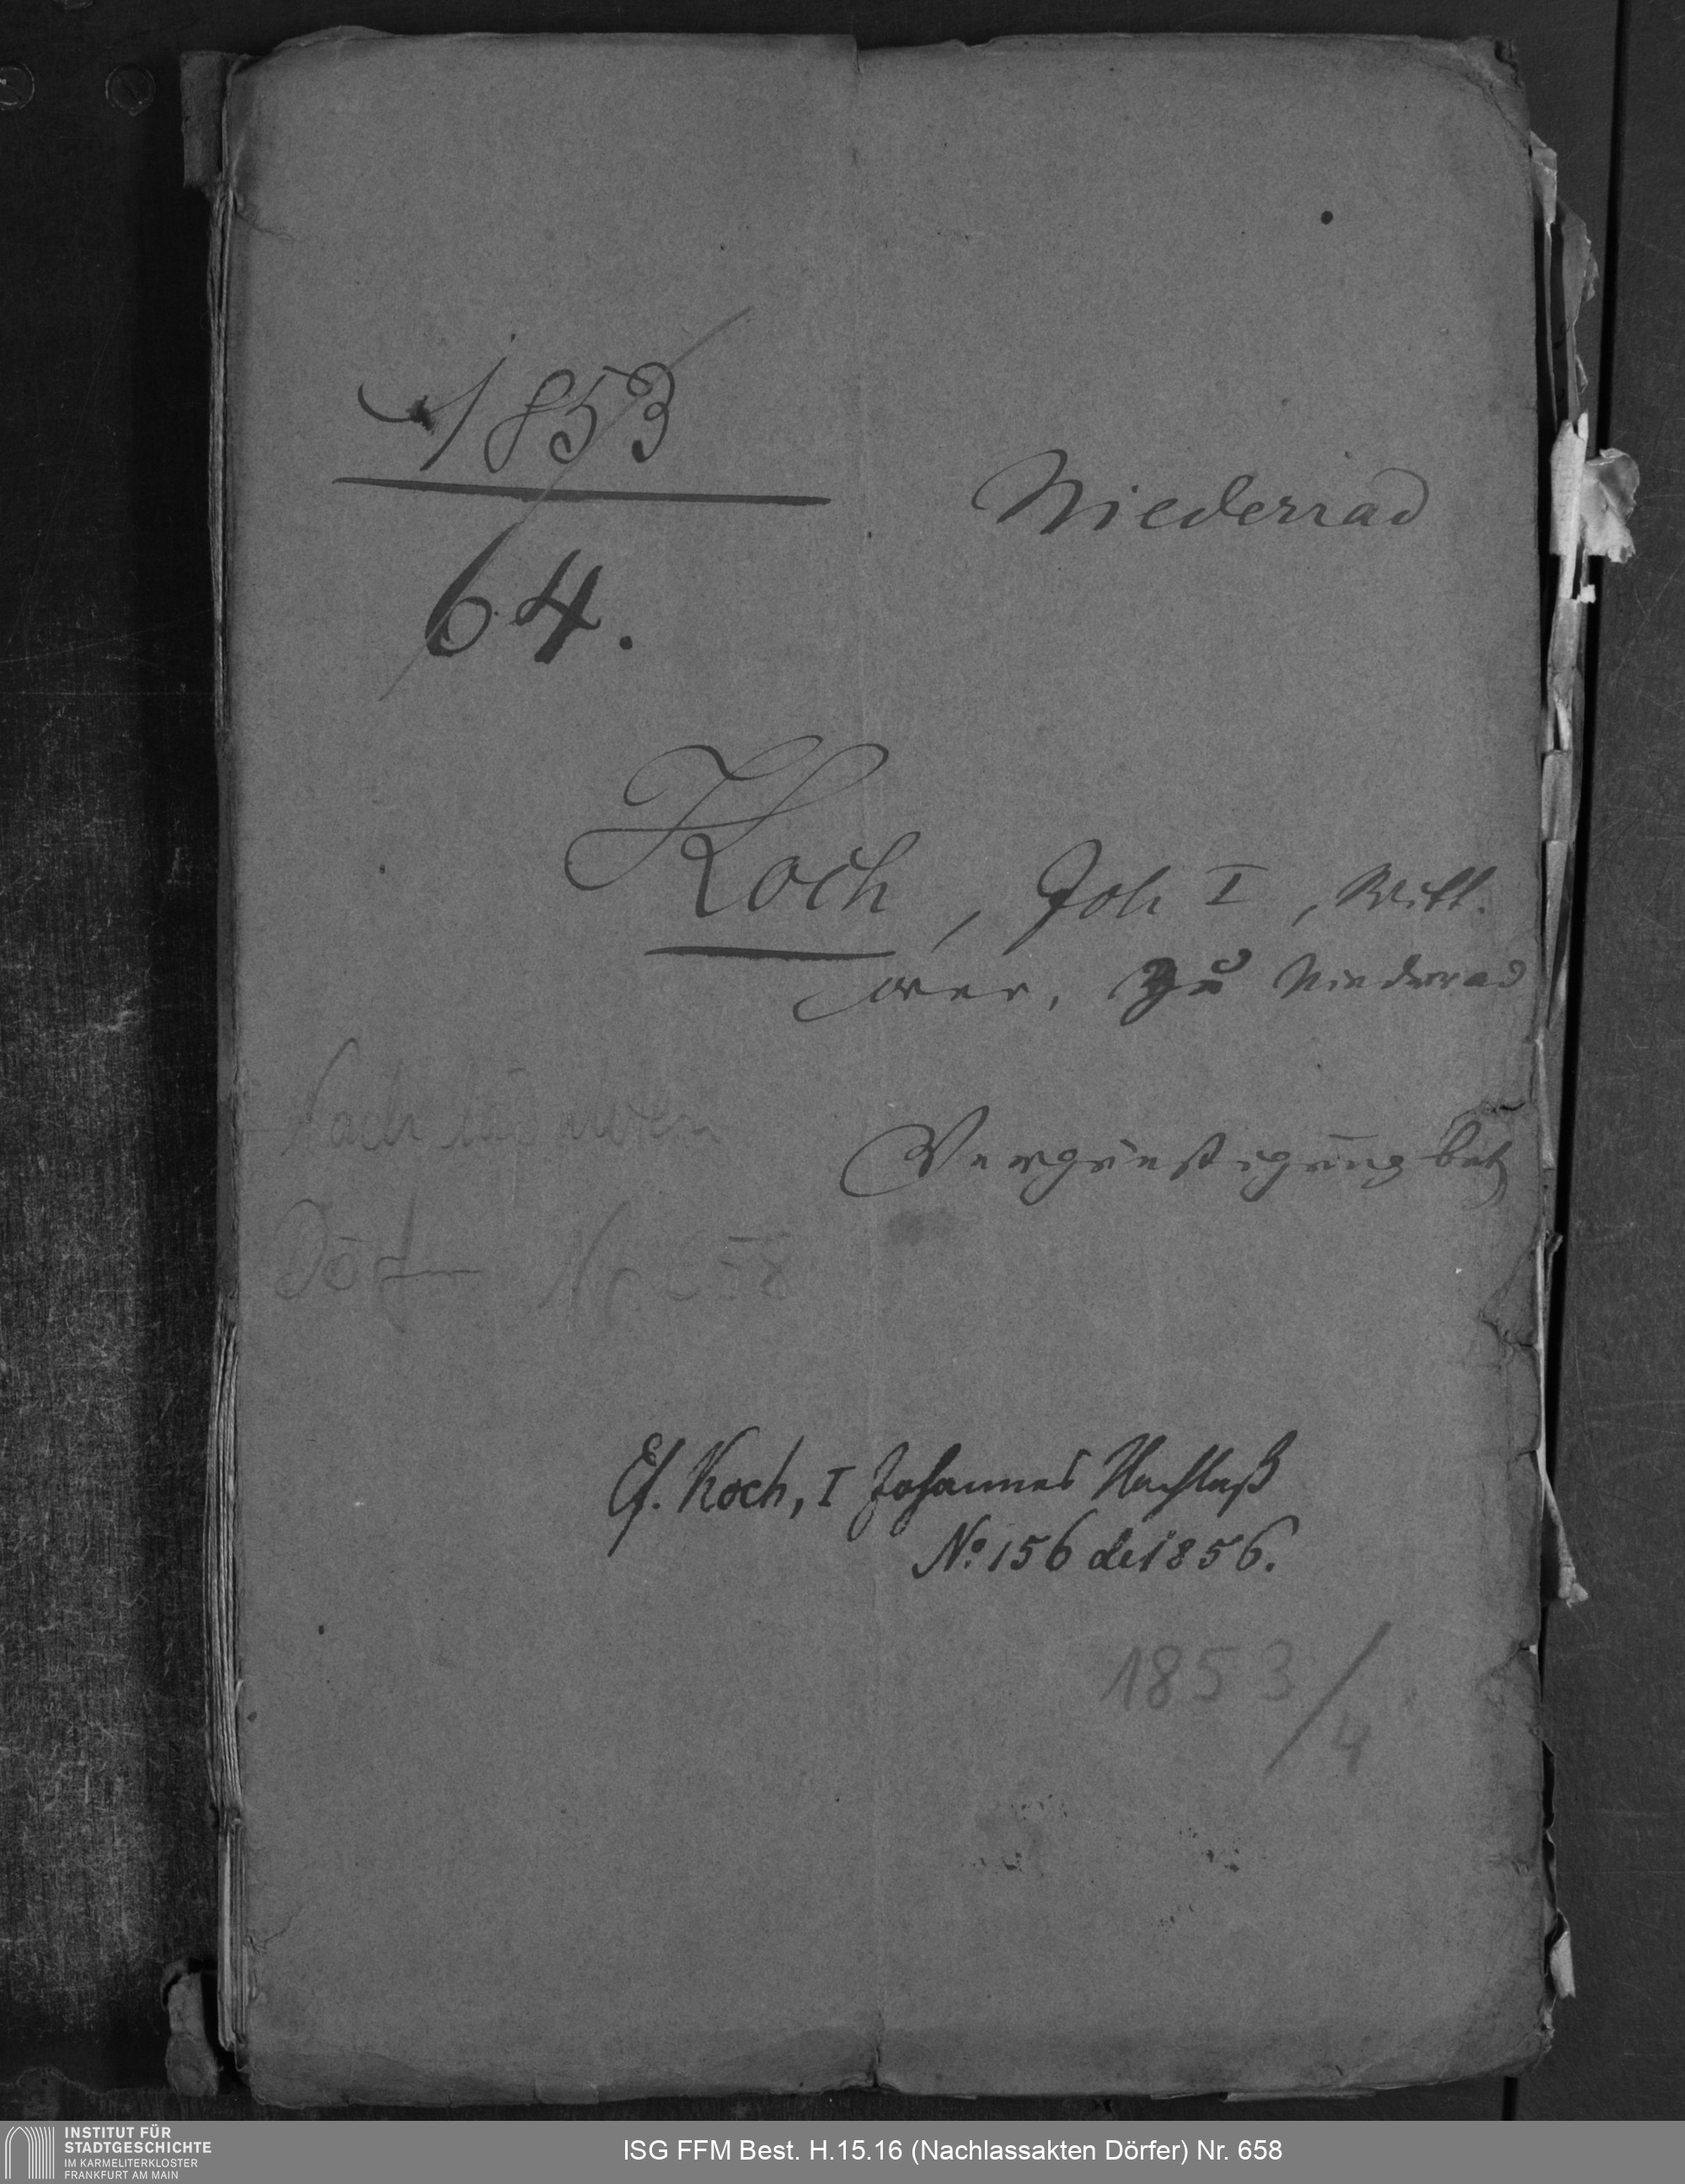 1853
64.
Niederrad
Koch, Joh I, Witt.
wer, zu Niederrad
Nachlassakten
Vergünstigung betz
Dörfer Nr. 658
Cf. Koch, I Johannes Nachlaß
No. 156 de 1856.
1853/4
INSTITUT FÜR
STADTGESCHICHTE
IM KARMELITERKLOSTER
FRANKFURT AM MAIN
ISG FFM Best. H.15.16 (Nachlassakten Dörfer) Nr. 658